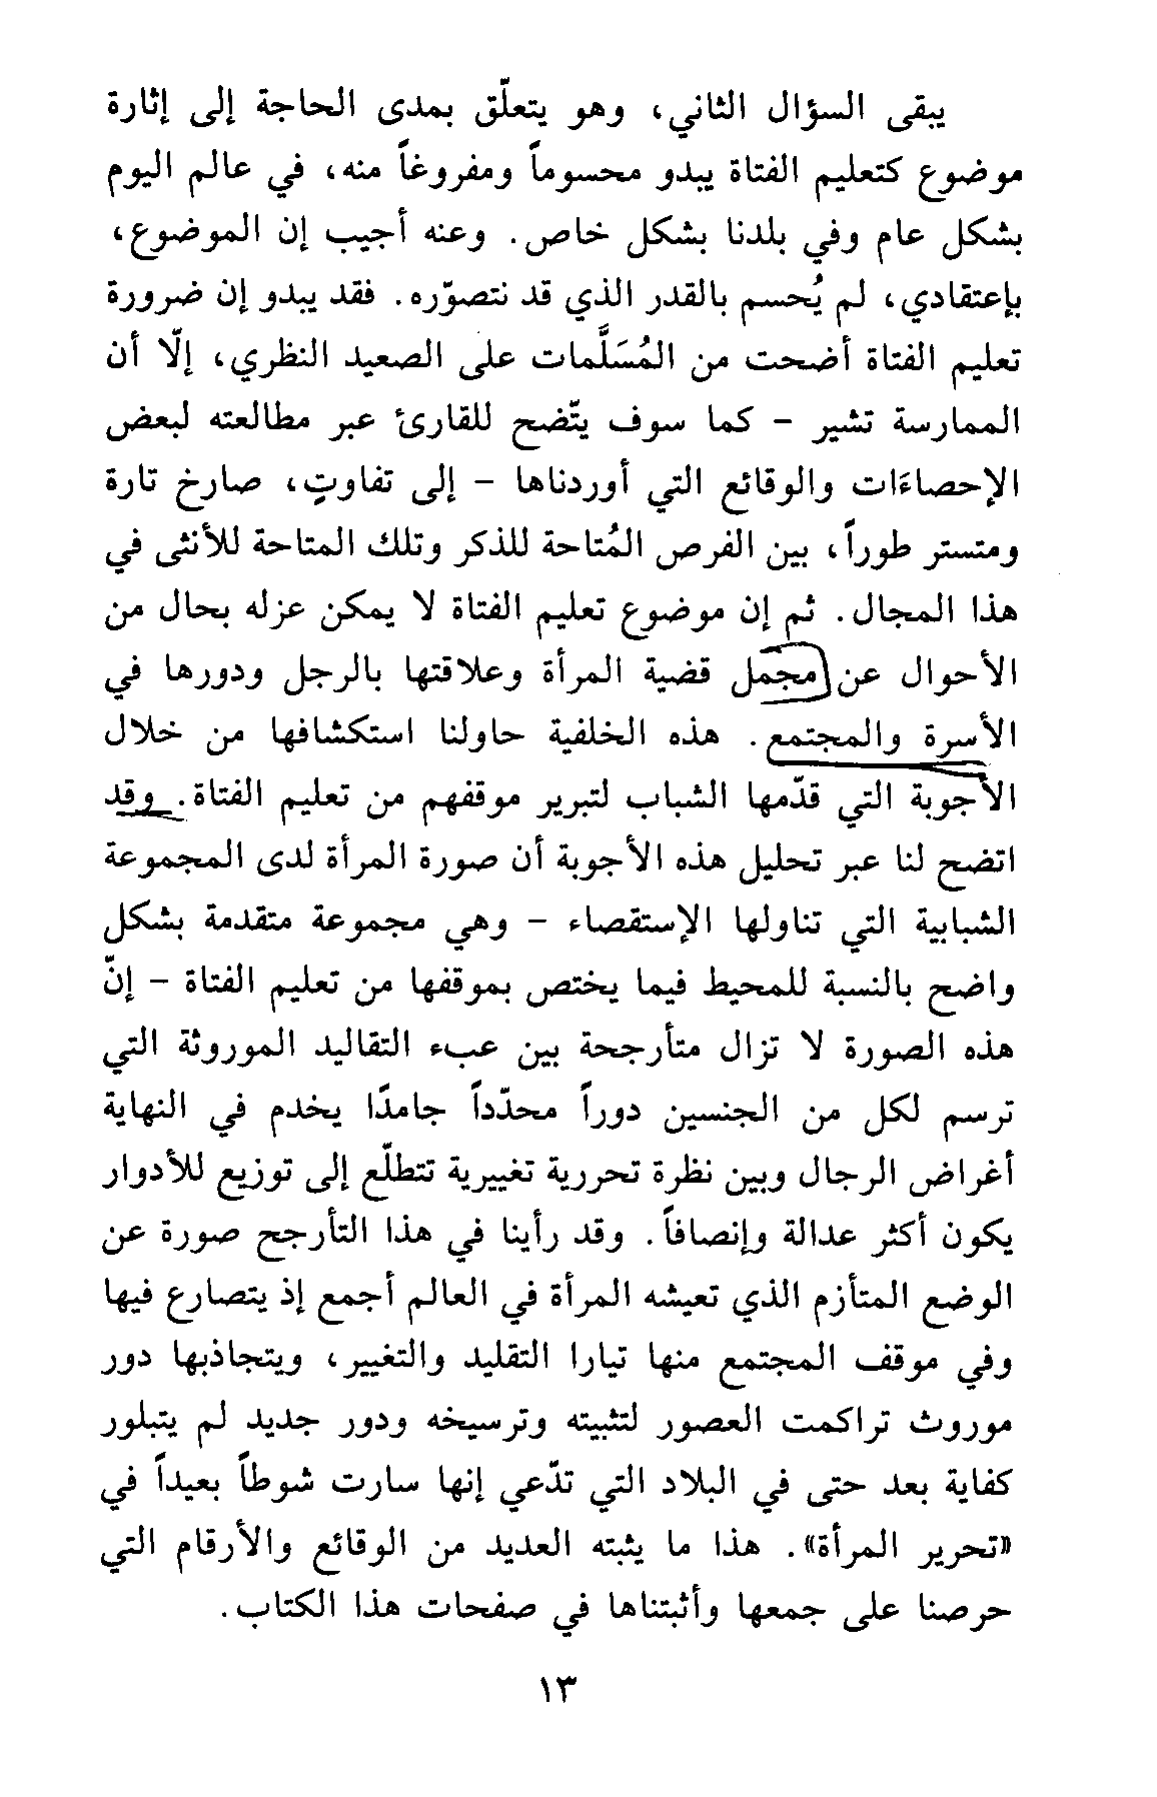 يبقى السؤال الثاني، وهو يتعلّق بمدى الحاجة إلى إثارة
موضوع كتعليم الفتاة يبدو محسوماً ومفروغاً منه، في عالم اليوم
بشكل عام وفي بلدنا بشكل خاص. وعنه أجيب إن الموضوع،
بإعتقادي، لم يُحسم بالقدر الذي قد نتصوّره. فقد يبدو إن ضرورة
تعليم الفتاة أضحت من المُسَلَّمات على الصعيد النظري، إلّا أن
الممارسة تشير - كما سوف يتّضح للقارئ عبر مطالعته لبعض
الإحصاءَات والوقائع التي أوردناها - إلى تفاوتٍ، صارخ تارة
ومتستر طوراً، بين الفرص المُتاحة للذكر وتلك المتاحة للأنثى في
هذا المجال. ثم إن موضوع تعليم الفتاة لا يمكن عزله بحال من
الأحوال عن مجمل قضية المرأة وعلاقتها بالرجل ودورها في
الأسرة والمجتمع. هذه الخلفية حاولنا استكشافها من خلال
الأجوبة التي قدّمها الشباب لتبرير موقفهم من تعليم الفتاة. وقد
اتضح لنا عبر تحليل هذه الأجوبة أن صورة المرأة لدى المجموعة
الشبابية التي تناولها الإستقصاء - وهي مجموعة متقدمة بشكل
واضح بالنسبة للمحيط فيما يختص بموقفها من تعليم الفتاة - إنّ
هذه الصورة لا تزال متأرجحة بين عبء التقاليد الموروثة التي
ترسم لكل من الجنسين دوراً محدّداً جامدًا يخدم في النهاية
أغراض الرجال وبين نظرة تحررية تغييرية تتطلّع إلى توزيع للأدوار
يكون أكثر عدالة وإنصافاً. وقد رأينا في هذا التأرجح صورة عن
الوضع المتأزم الذي تعيشه المرأة في العالم أجمع إذ يتصارع فيها
وفي موقف المجتمع منها تيارا التقليد والتغيير، ويتجاذبها دور
موروث تراكمت العصور لتثبيته وترسيخه ودور جديد لم يتبلور
كفاية بعد حتى في البلاد التي تدّعي إنها سارت شوطاً بعيداً في
«تحرير المرأة». هذا ما يثبته العديد من الوقائع والأرقام التي
حرصنا على جمعها وأثبتناها في صفحات هذا الكتاب.
١٣